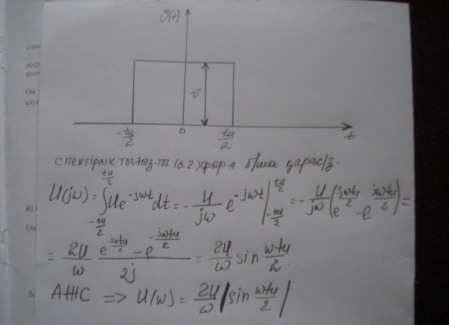 U(t)
U
-tu/2 0 tu/2 t
спектрлік тығыз-ты (6.2) фор-а б/ша қарас/з.
U(jw) = ∫_{-tu/2}^{tu/2} Ue^{-jwt} dt = - U/jw e^{-jwt} |_{-tu/2}^{tu/2} = - U/jw (e^{jwtu/2} - e^{jwtu/2}) =
= 2U/w (e^{jwtu/2} - e^{-jwtu/2})/2j = 2U/w sin wtu/2.
АЖС => U(w) = 2U/w |sin wtu/2|